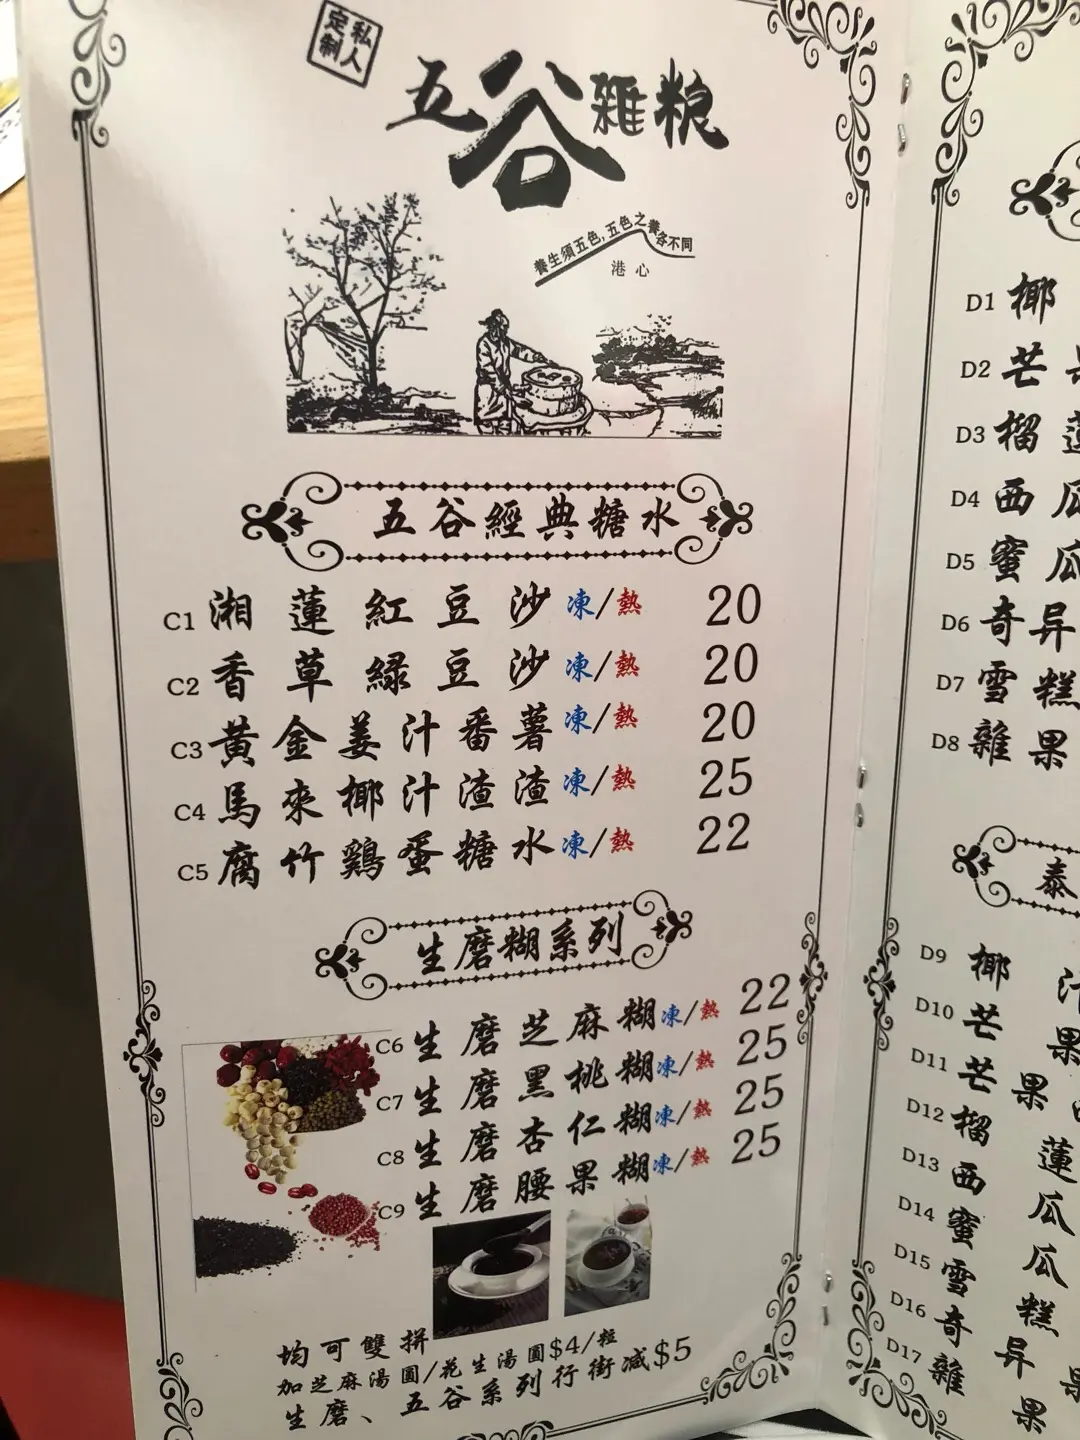 私人定制
五谷雜粮
養生須五色,五色之養各不同
港心
五谷經典糖水
C1 湘蓮紅豆沙 凍/熱 20
C2 香草緑豆沙 凍/熱 20
C3 黃金姜汁番薯 凍/熱 20
C4 馬來椰汁渣渣 凍/熱 25
C5 腐竹鷄蛋糖水 凍/熱 22
生磨糊系列
C6 生磨芝麻糊 凍/熱 22
C7 生磨黑桃糊 凍/熱 25
C8 生磨杏仁糊 凍/熱 25
C9 生磨腰果糊 凍/熱 25
均可雙拼
加芝麻湯圓/花生湯圓$4/粒
生磨、五谷系列行街减$5
D1 椰
D2 芒
D3 榴蓮
D4 西瓜
D5 蜜瓜
D6 奇异
D7 雪糕
D8 雜果
泰
D9 椰汁
D10 芒果
D11 芒果
D12 榴蓮
D13 西瓜
D14 蜜瓜
D15 雪糕
D16 奇异果
D17 雜果